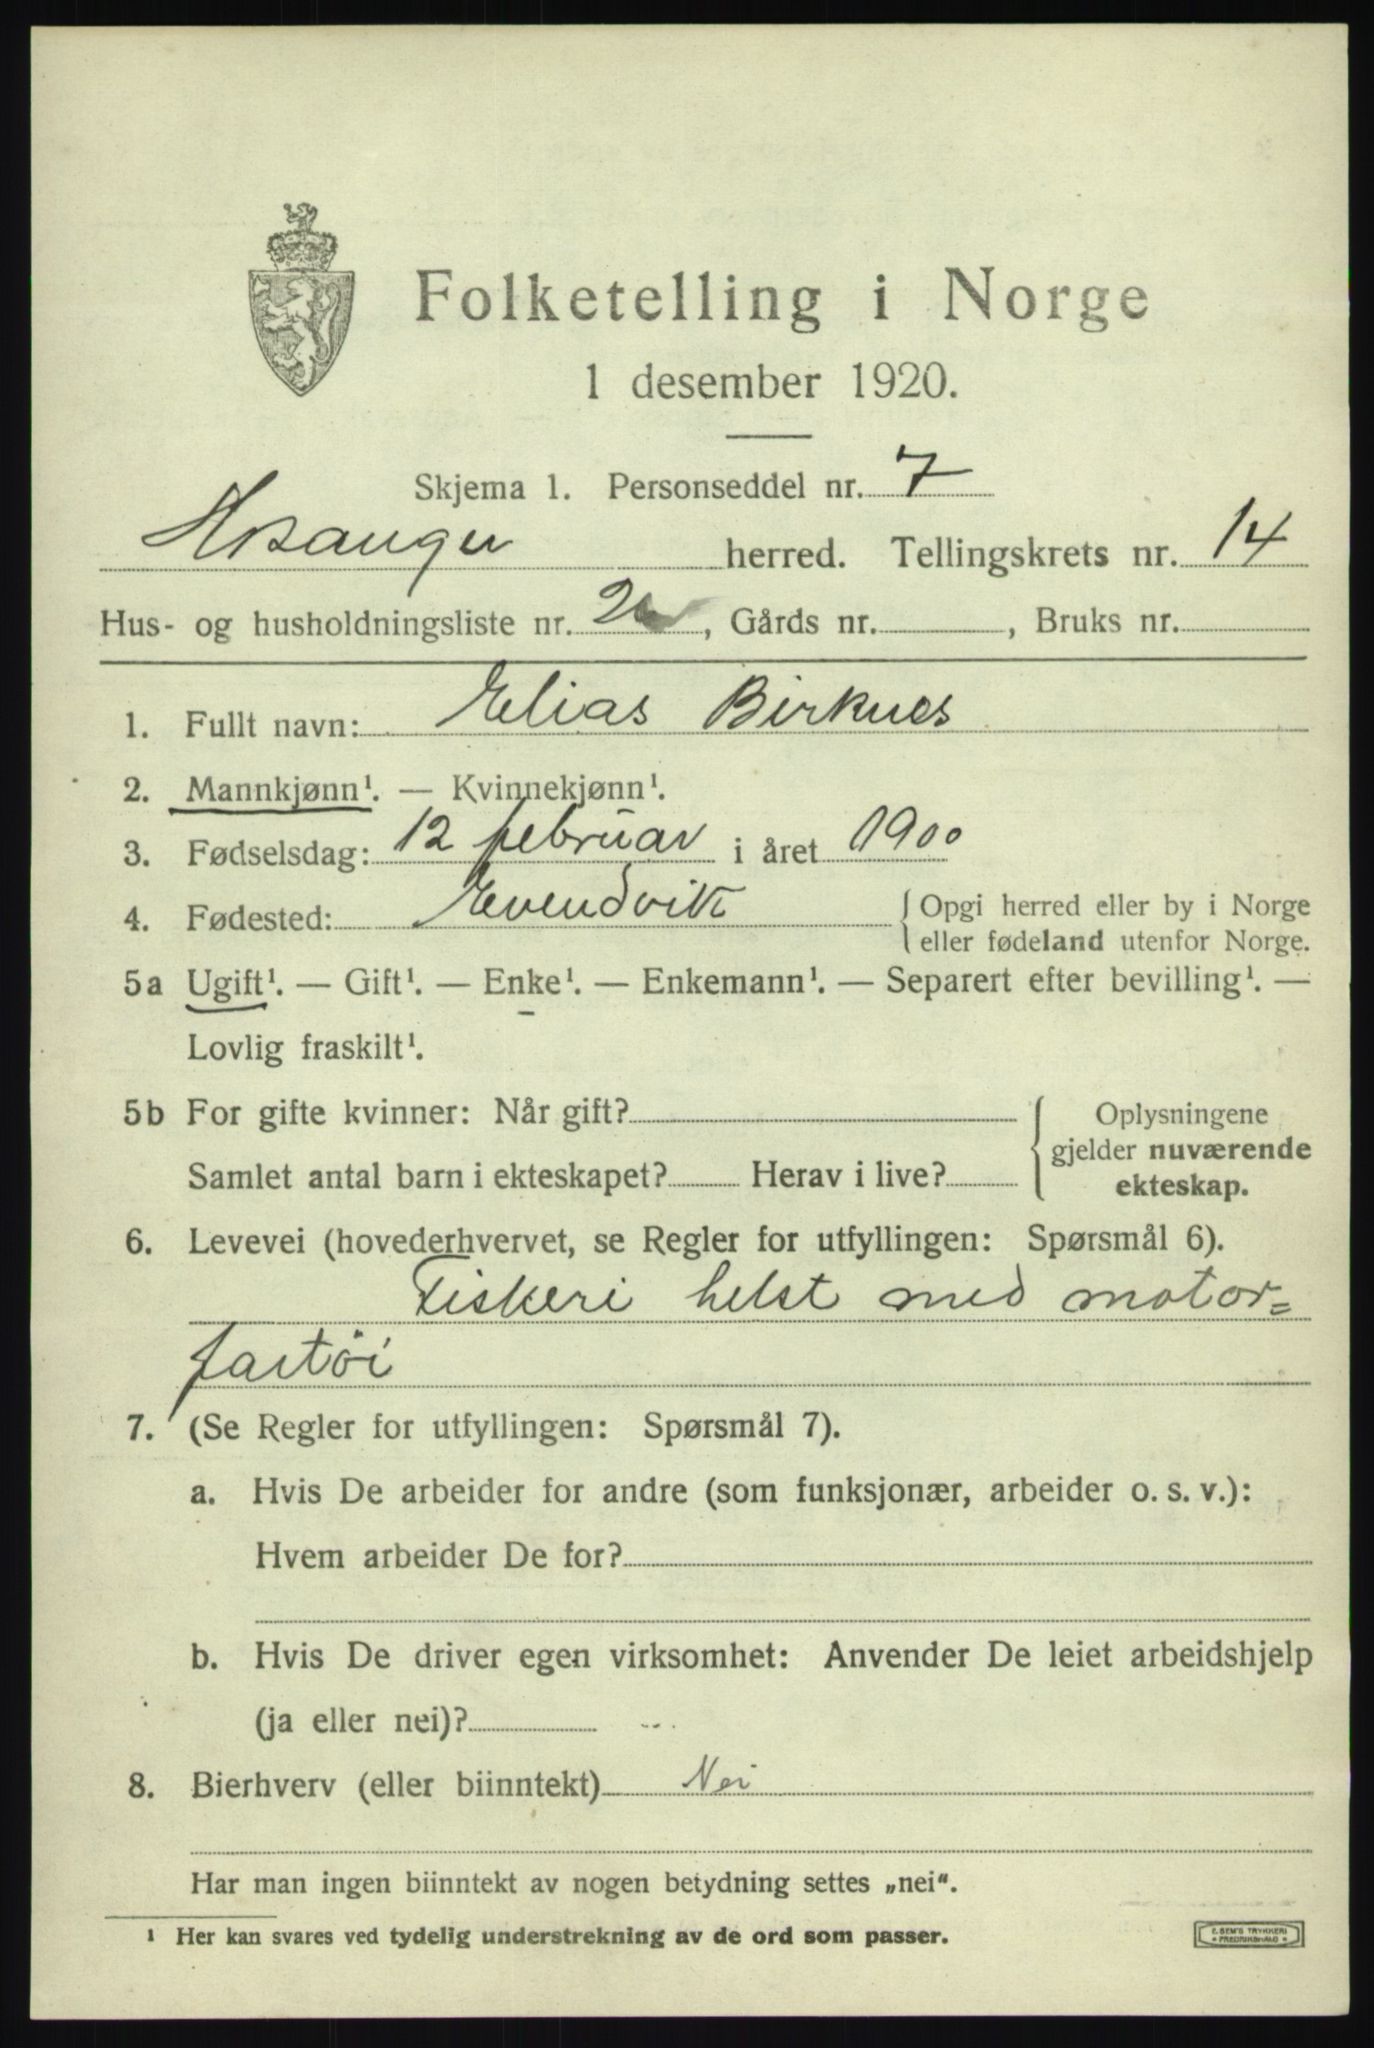 Folketelling i Norge
1 desember 1920.
Skjema 1. Personseddel nr. 7
Hosanger herred. Tellingskrets nr. 14
Hus- og husholdningsliste nr. 2, Gårds nr. , Bruks nr.
1. Fullt navn: Elias Birknes
2. Mannkjønn¹. — Kvinnekjønn¹.
3. Fødselsdag: 12 februar i året 1900
4. Fødested: Evendvik { Opgi herred eller by i Norge
eller fødeland utenfor Norge.
5a Ugift¹. — Gift¹. — Enke¹. — Enkemann¹. — Separert efter bevilling¹. —
Lovlig fraskilt¹.
5b For gifte kvinner: Når gift? { Oplysningene
gjelder nuværende
Samlet antal barn i ekteskapet? Herav i live? ekteskap.
6. Levevei (hovederhvervet, se Regler for utfyllingen: Spørsmål 6).
Fiskeri helst med motor=
fartöi
7. (Se Regler for utfyllingen: Spørsmål 7).
a. Hvis De arbeider for andre (som funksjonær, arbeider o. s. v.):
Hvem arbeider De for?
b. Hvis De driver egen virksomhet: Anvender De leiet arbeidshjelp
(ja eller nei)?
8. Bierhverv (eller biinntekt) Nei
Har man ingen biinntekt av nogen betydning settes „nei“.
¹ Her kan svares ved tydelig understrekning av de ord som passer.
E. SEM'S TRYKKERI
FREDRIKSHALD